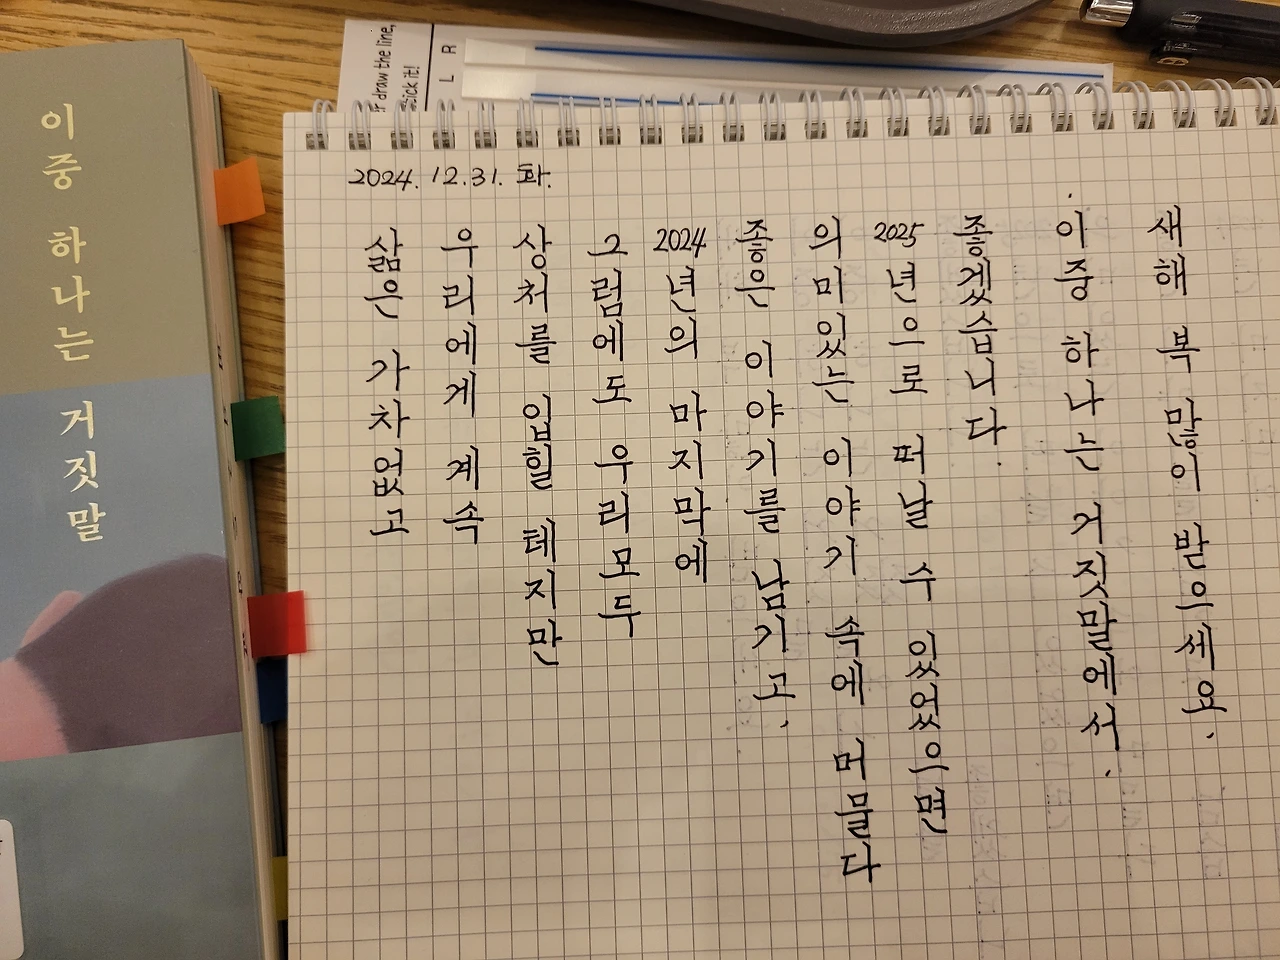 이중 하나는 거짓말
r draw the line,
stick it!
L R
2024. 12. 31. 화.
삶은 가차없고
우리에게 계속
상처를 입힐 테지만
그럼에도 우리모두
2024년의 마지막에
좋은 이야기를 남기고,
의미있는 이야기 속에 머물다
2025년으로 떠날 수 있었으면
좋겠습니다.
이중하나는 거짓말에서.
새해 복 많이 받으세요.